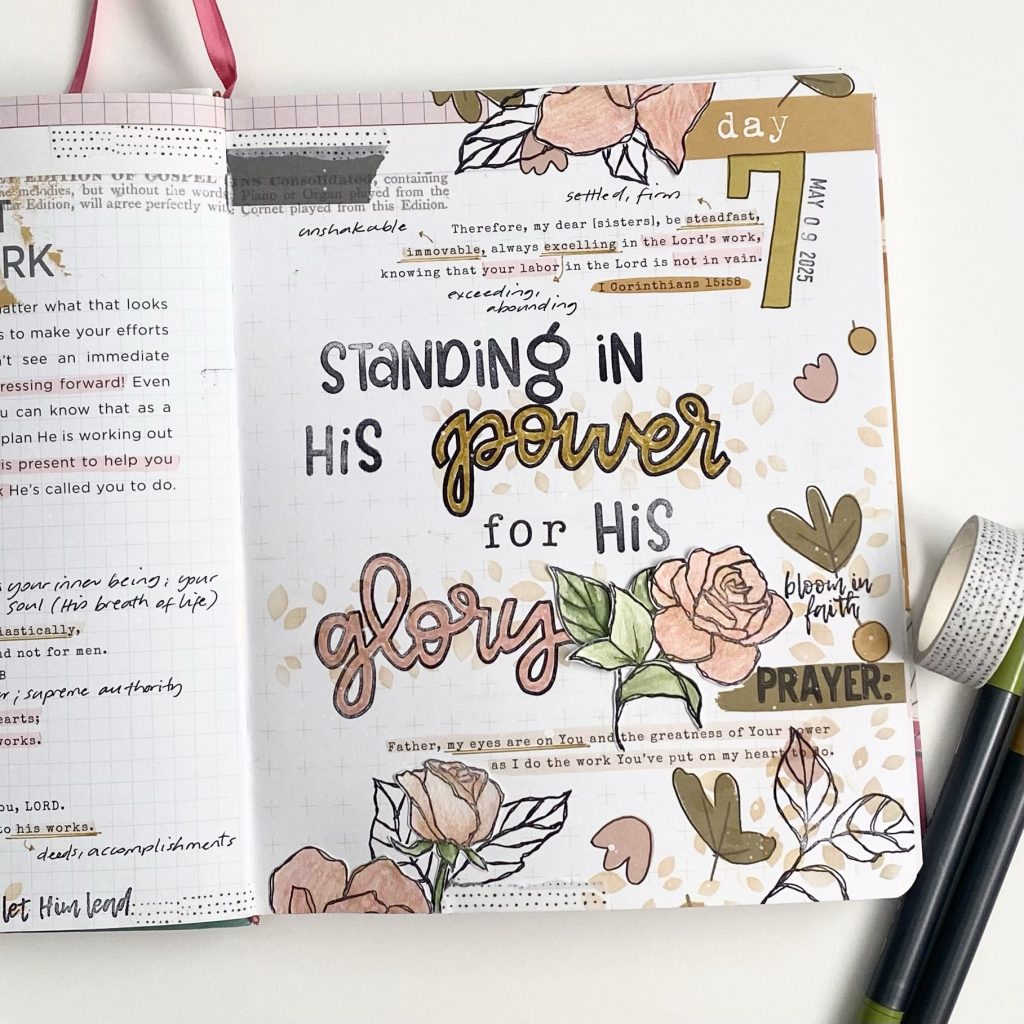 EDITION OF GOSPEL
melodies, but without the words
Edition, will agree perfectly
RK
matter what that looks
s to make your efforts
n't see an immediate
pressing forward! Even
u can know that as a
plan He is working out
is present to help you
k He's called you to do.
your inner being; your
soul (His breath of life)
iastically,
nd not for men.
; supreme authority
earts;
works.
ou, LORD.
to his works.
deeds, accomplishments
let Him lead.
Consolidated, containing
Piano or Organ played from the
Cornet played from this Edition.
day
7
MAY 09 2025
settled, firm
unshakable
Therefore, my dear [sisters], be steadfast,
immovable, always excelling in the Lord's work,
knowing that your labor in the Lord is not in vain.
I Corinthians 15:58
exceeding,
abounding
STANDING IN
HIS power
for HIS
glory
bloom in
faith
PRAYER:
Father, my eyes are on You and the greatness of Your power
as I do the work You've put on my heart to do.